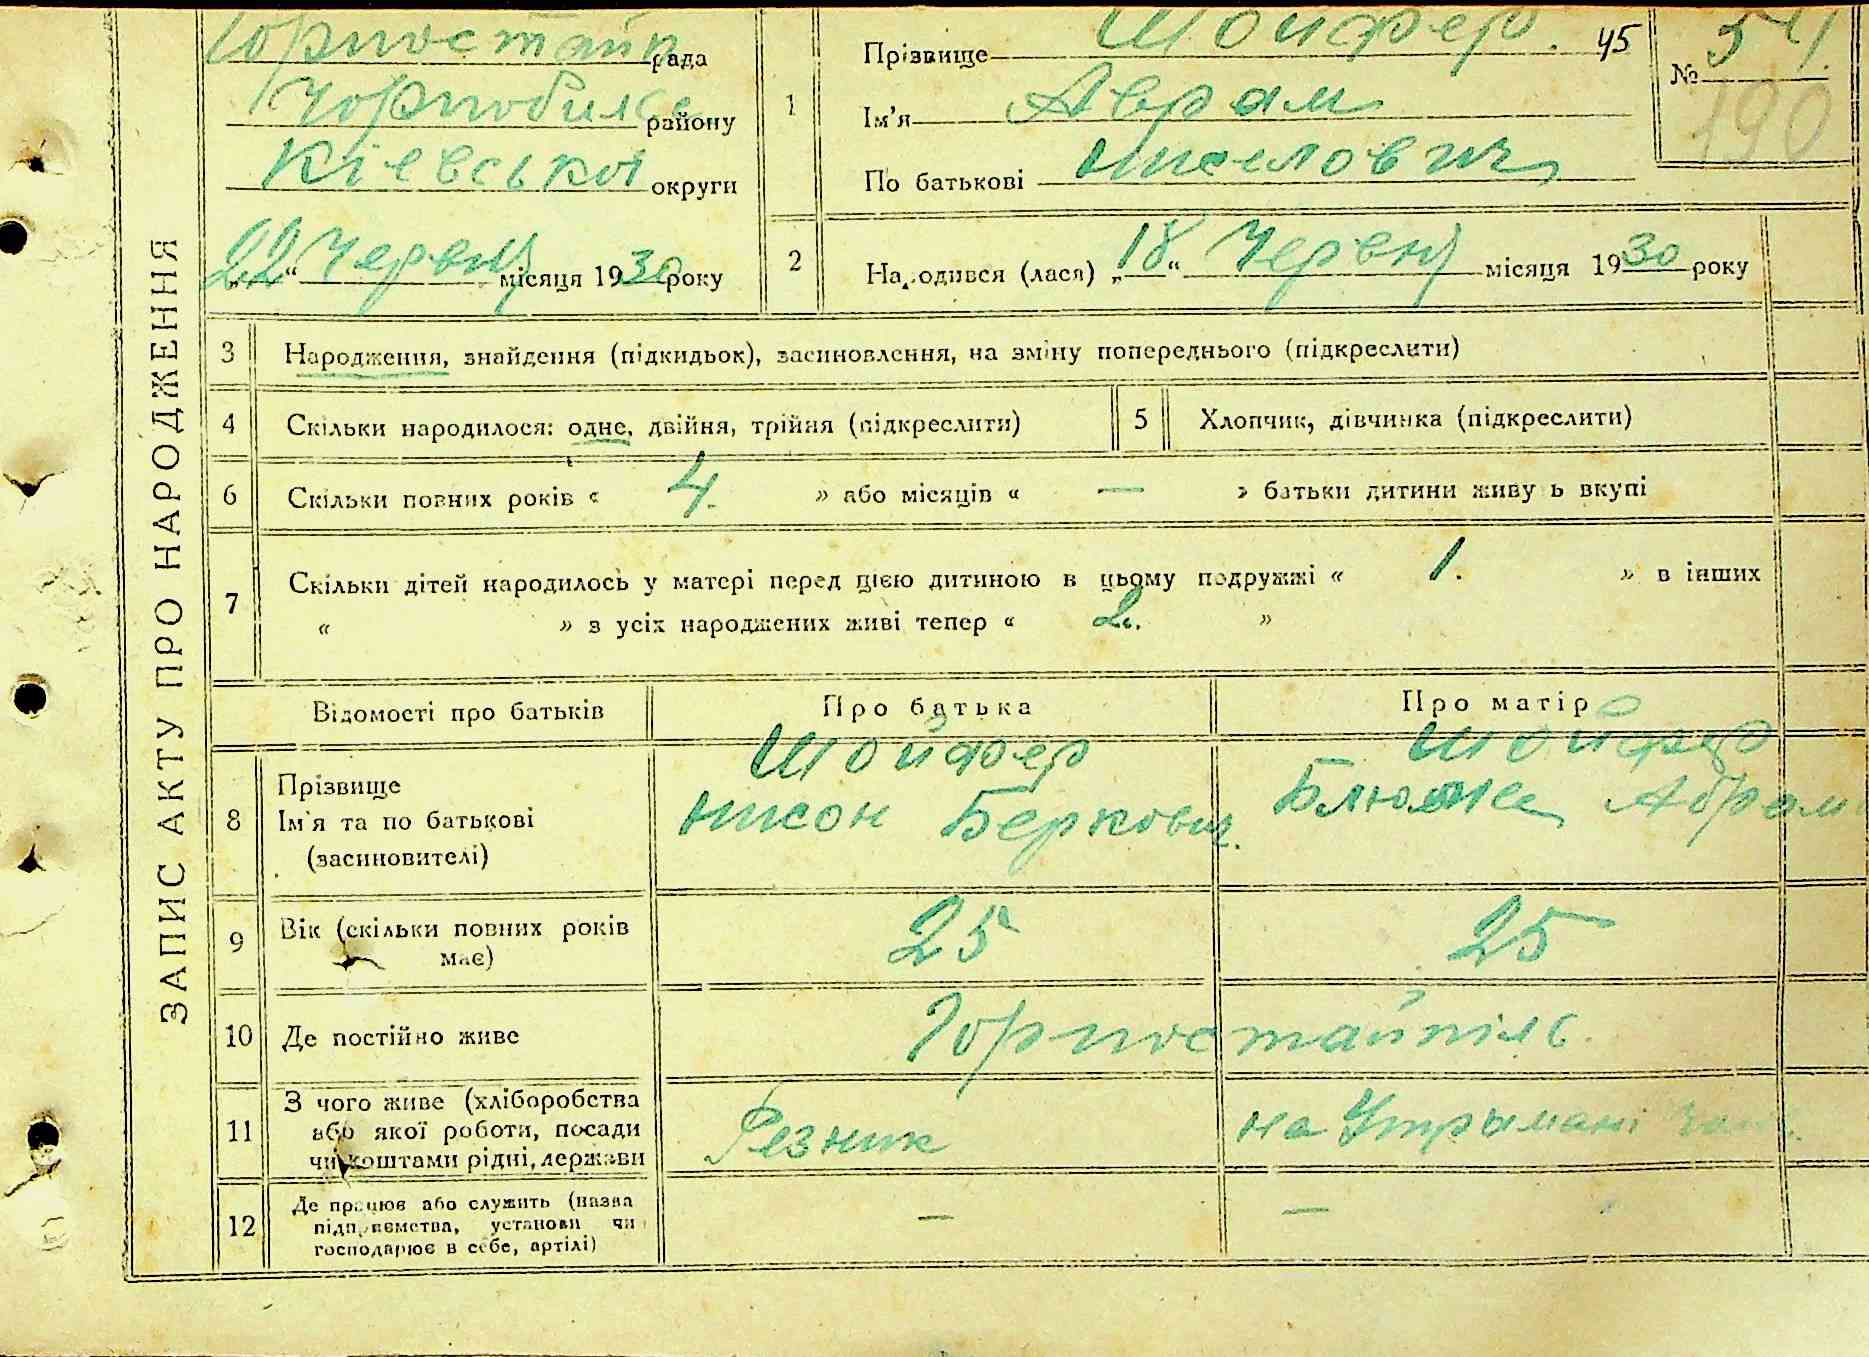 ЗАПИС АКТУ ПРО НАРОДЖЕННЯ
Горностайп рада
Чорнобильс району
Кіевськоі округи
„22“ Червня місяця 1930 року
1
Прізвище Шойфер. 45
Ім'я Аврам
По батькові Ниселович
№ 54.
190
2
Народився (лася) „18“ Червня місяця 1930 року
3 Народження, знайдення (підкидьок), засиновлення, на зміну попереднього (підкреслити)
4 Скільки народилося: одне, двійня, трійня (підкреслити)
5 Хлопчик, дівчинка (підкреслити)
6 Скільки повних років « 4. » або місяців « — » батьки дитини живу ь вкупі
7 Скільки дітей народилось у матері перед цією дитиною в цьому подружжі « 1. » в інших
« » з усіх народжених живі тепер « 2. »
Відомості про батьків Про батька Про матір
8 Прізвище
Ім'я та по батькові
(засиновителі)
Шойфер
Нисон Беркович.
Шойфер
Блюма Абрам
9 Вік (скільки повних років
має)
25 25
10 Де постійно живе Горностайпіль.
11 З чого живе (хліборобства
або якої роботи, посади
чи коштами рідні, держави
Резник на Утрымані
12 Де працює або служить (назва
підприємства, установи чи
господарює в себе, артілі)
— —